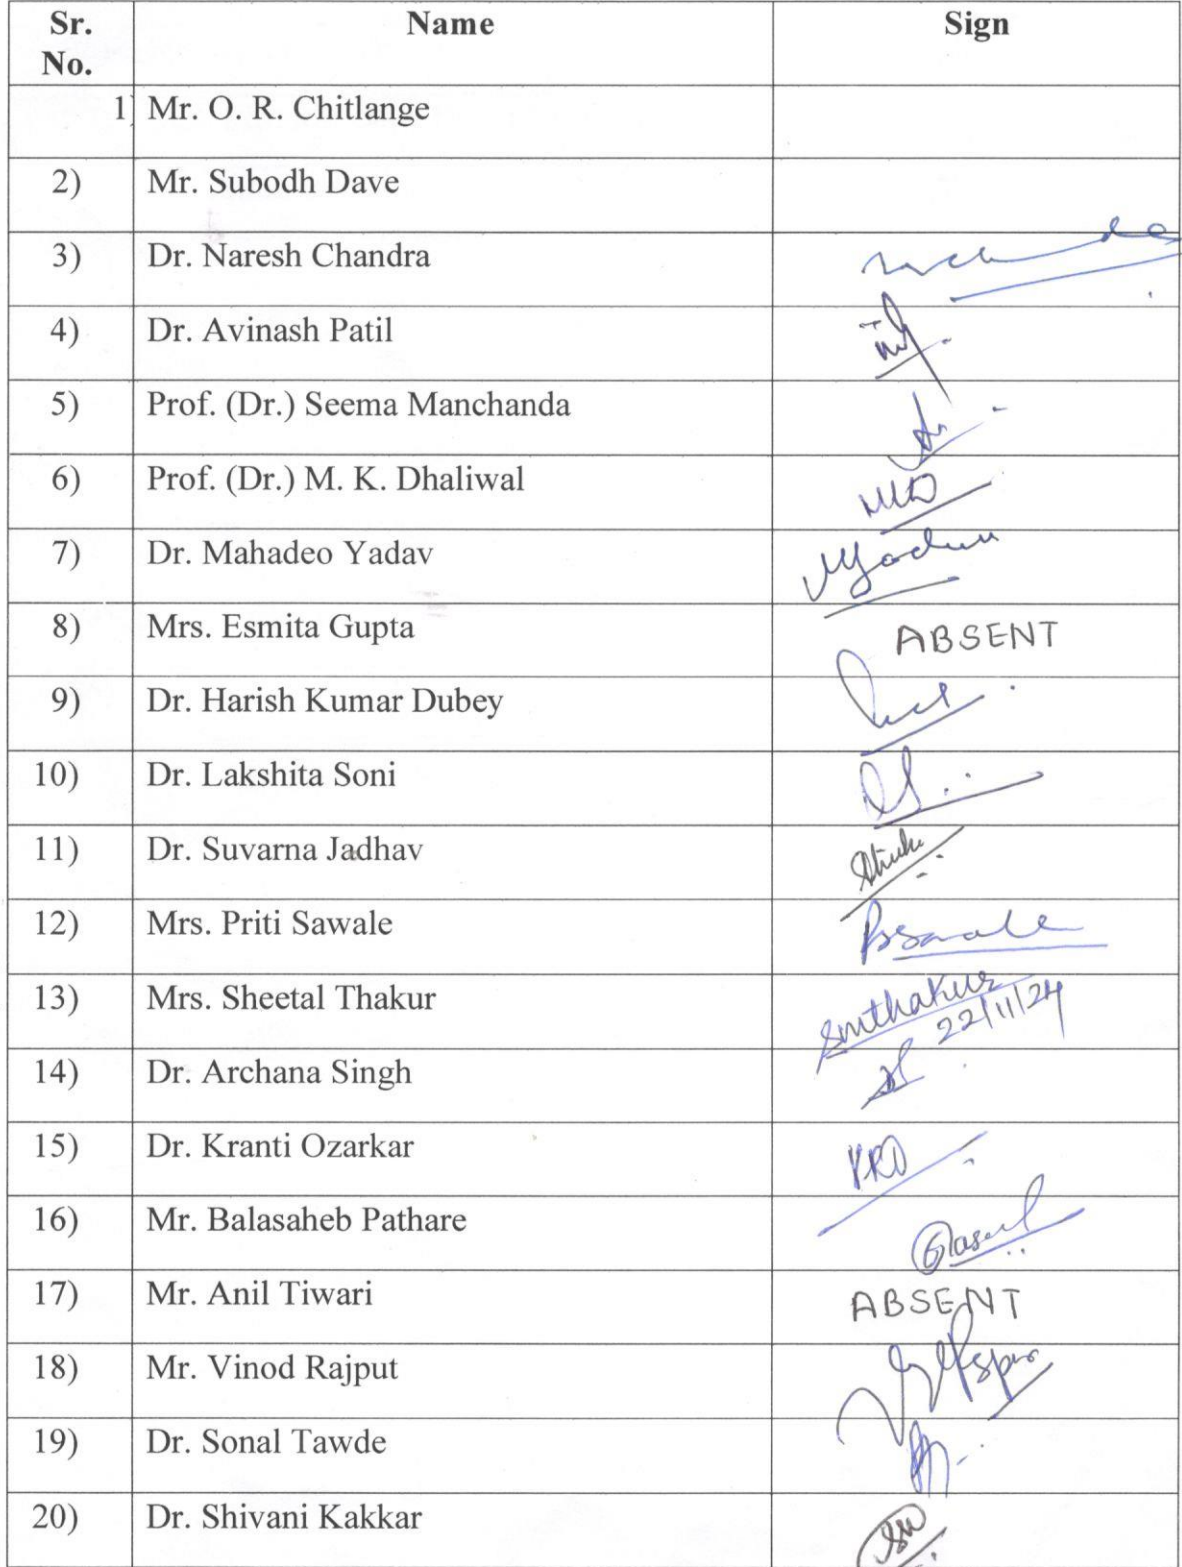 Sr. No. Name Sign
1) Mr. O. R. Chitlange
2) Mr. Subodh Dave
3) Dr. Naresh Chandra
4) Dr. Avinash Patil
5) Prof. (Dr.) Seema Manchanda
6) Prof. (Dr.) M. K. Dhaliwal
7) Dr. Mahadeo Yadav
8) Mrs. Esmita Gupta ABSENT
9) Dr. Harish Kumar Dubey
10) Dr. Lakshita Soni
11) Dr. Suvarna Jadhav
12) Mrs. Priti Sawale
13) Mrs. Sheetal Thakur smthakur 22/11/24
14) Dr. Archana Singh
15) Dr. Kranti Ozarkar
16) Mr. Balasaheb Pathare
17) Mr. Anil Tiwari ABSENT
18) Mr. Vinod Rajput
19) Dr. Sonal Tawde
20) Dr. Shivani Kakkar